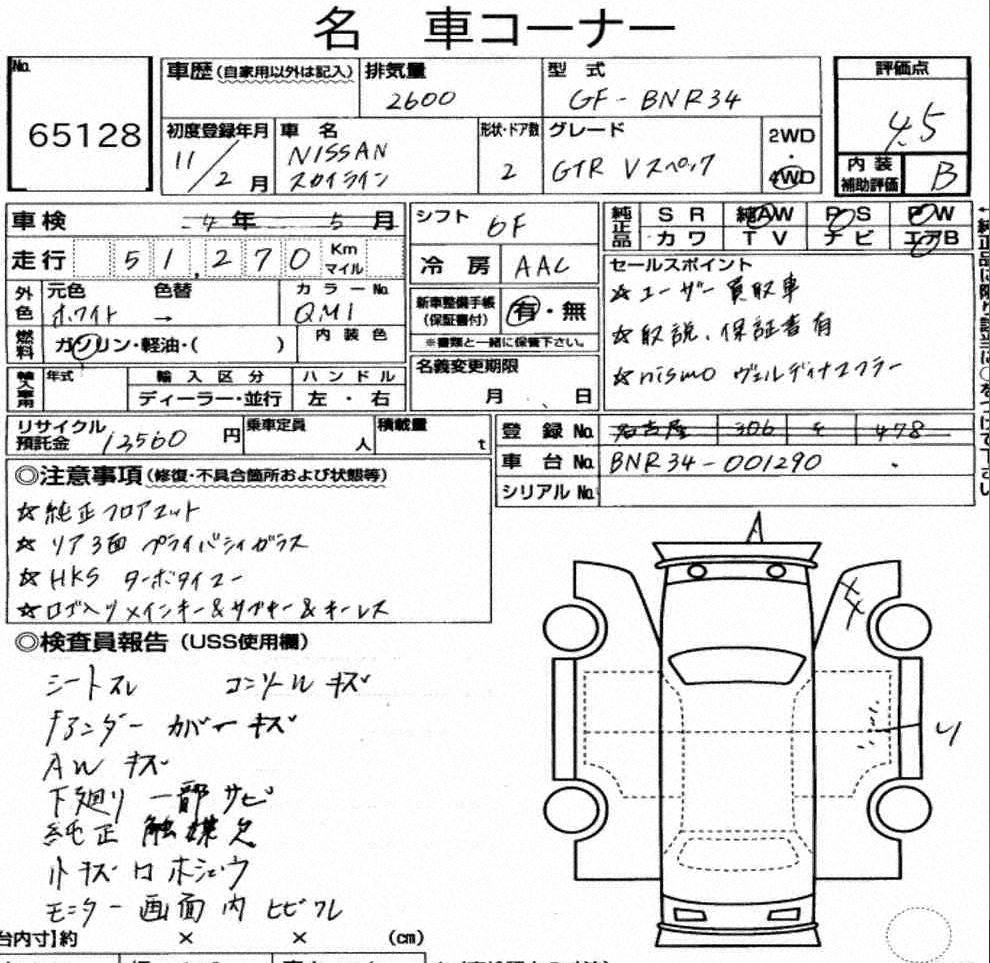 名 車コーナー
No.
65128
車歴(自家用以外は記入)
排気量
2600
型 式
GF-BNR34
評価点
4.5
初度登録年月
11/2月
車 名
NISSAN
スカイライン
形状・ドア数
2
グレード
GTR Vスペック
2WD
・
4WD
内 装
補助評価
B
車検 4年 5月
シフト 6F
純正品
SR 純AW PS PW
カワ TV ナビ エアB
走行 51,270 Km マイル
冷 房 AAC
セールスポイント
☆ユーザー買取車
☆取説、保証書有
☆nismo ヴェルディナマフラー
外色
元色 色替 カラーNo.
ホワイト → QM1
新車整備手帳
(保証書付)
有・無
※書類と一緒に保管下さい。
燃料
ガソリン・軽油・( )
内装色
名義変更期限
月 日
輸入車用
年式
輸入区分
ハンドル
ディーラー・並行
左・右
リサイクル
預託金
12560円
乗車定員
人
積載量
t
登 録 No. 名古屋 306 478
車 台 No. BNR34-001290
シリアル No.
◎注意事項(修復・不具合箇所および状態等)
☆純正フロアマット
☆リア3面 プライバシィガラス
☆HKS ターボタイマー
☆ロゴ入リメインキー&サブキー&キーレス
◎検査員報告(USS使用欄)
シートスレ コンソールキズ
カバーキズ
AWキズ
下廻り 一部サビ
純正 触媒欠
小キズ
モニター画面内
リ
台内寸】約 × × (cm)